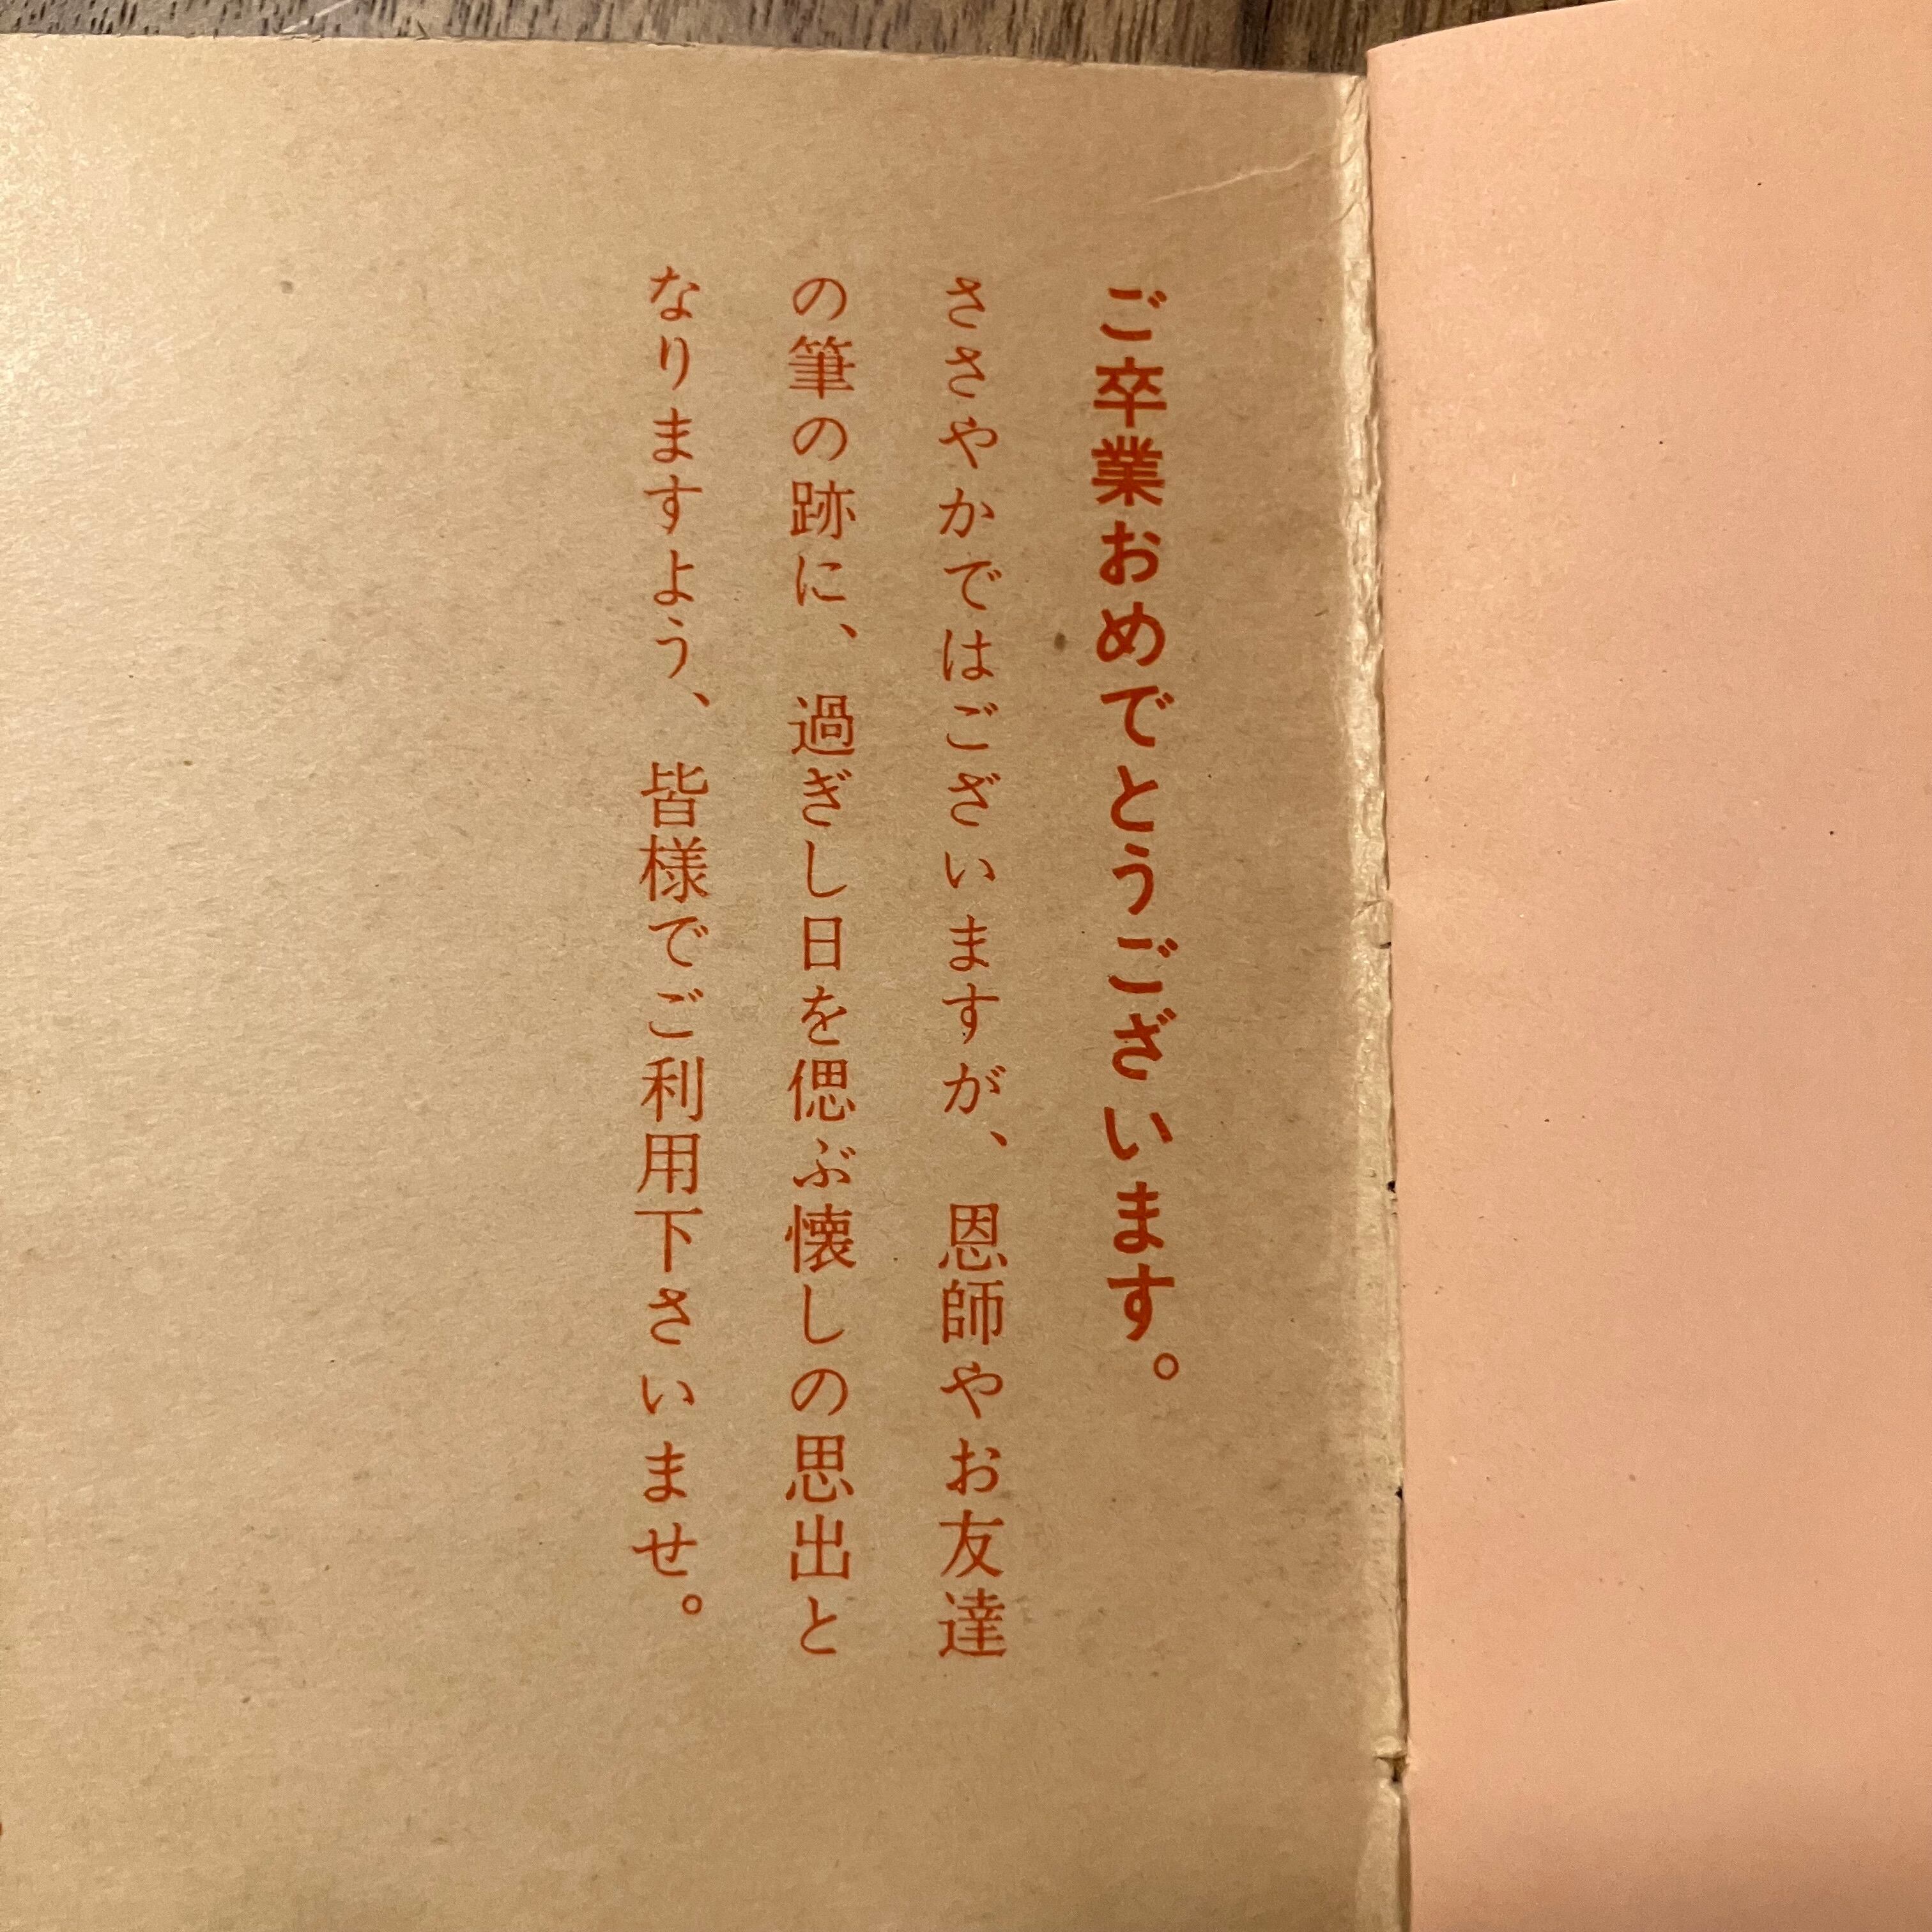 ご卒業おめでとうございます。
ささやかではございますが、恩師やお友達
の筆の跡に、過ぎし日を偲ぶ懐しの思出と
なりますよう、皆様でご利用下さいませ。